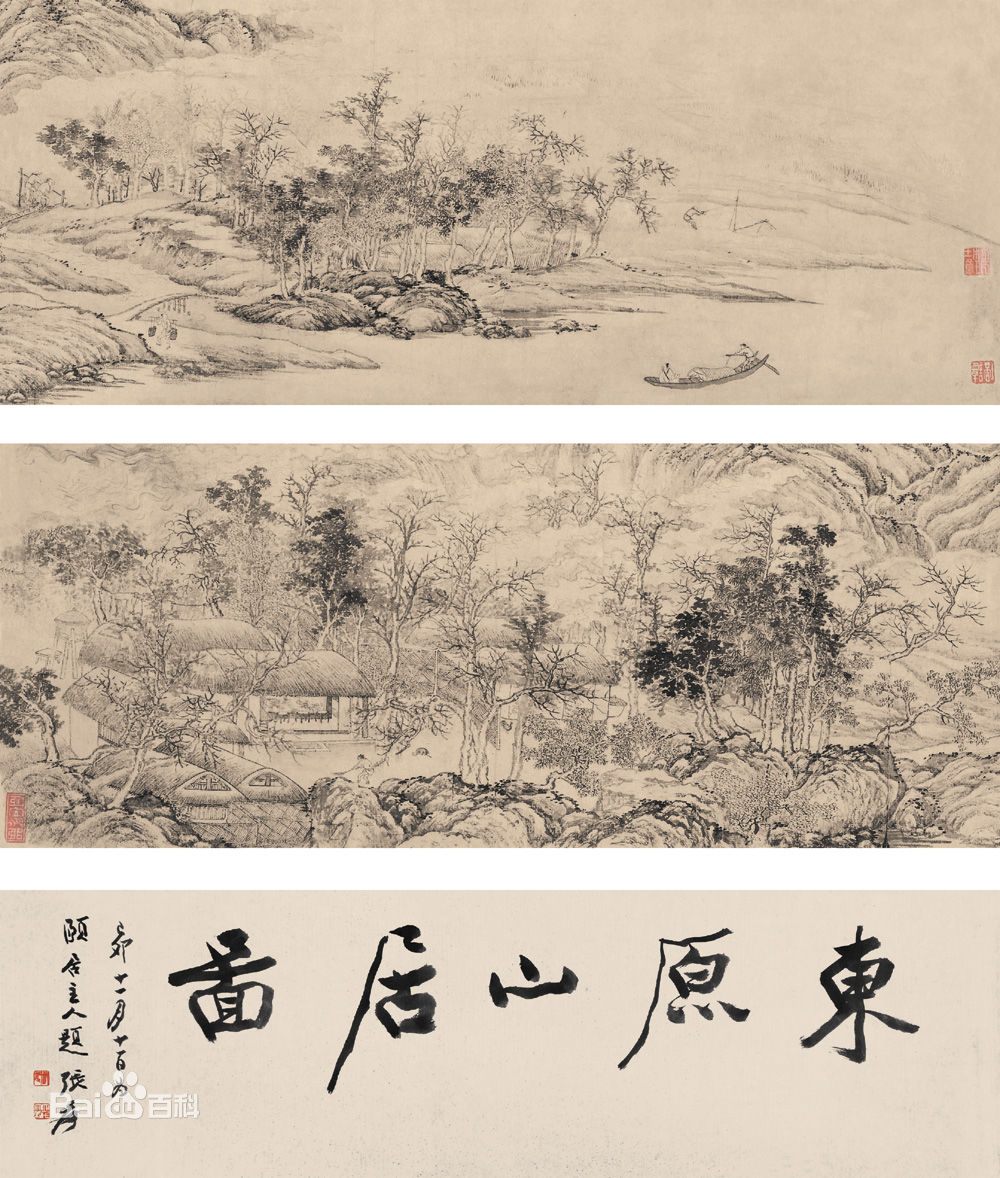 東原山居圖
卯十一月十日為
頤居主人題 張爰
Bai 百科